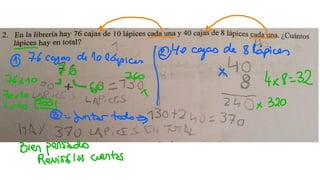 2. En la librería hay 76 cajas de 10 lápices cada una y 40 cajas de 8 lápices cada una. ¿Cuántos
lápices hay en total?
① 76 cajas de 10 lápices
② 40 cajas de 8 lápices
76 x 10
+ 60 = 130
760
LAPICES LAPICES
40
x 8
240
4x8=32
x 320
= juntar todo → 130+240=370
HAY 370 LAPICES EN TOTAL
Bien pensado
Revisa las cuentas